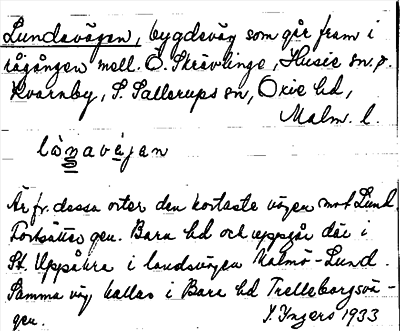 Lundavägen, bygdeväg som går fram i
rågången mell. Ö. Skrävlinge, Husie sn, o.
Kvarnby, S. Sallerups sn, Oxie hd,
Malm. l.
lònavéjen
Är fr. dessa orter den kortaste vägen mot Lund.
Fortsätter gen. Bara hd och uppgår där i
St. Uppåkra i landsvägen Malmö-Lund.
Samma väg kallas i Bara hd Trelleborgsvä-
gen. I. Ingers 1933